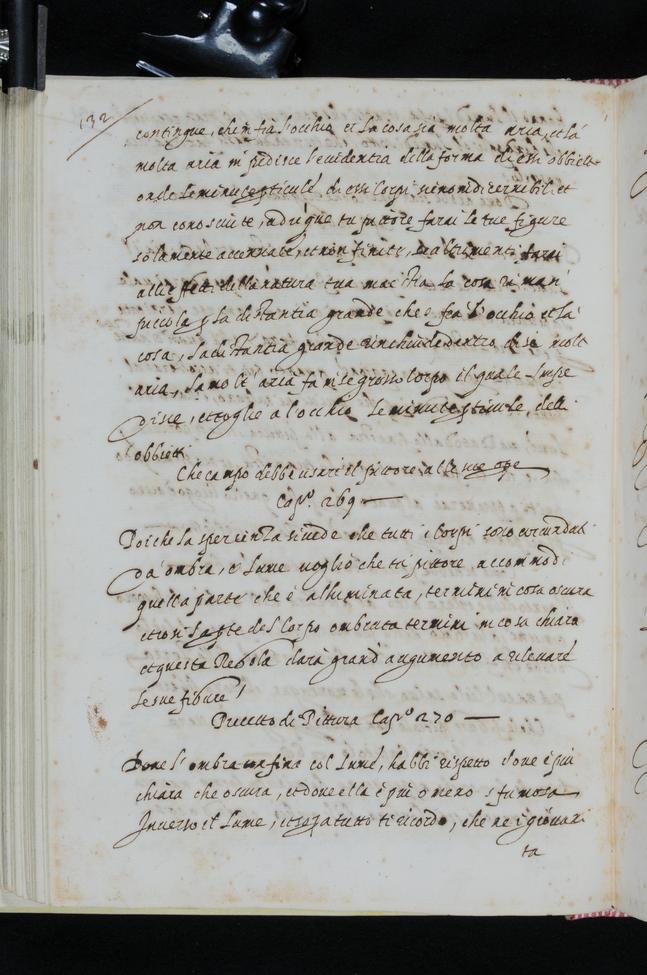 132
contingue, che in fra l'occhio et la cosa sia molta aria, et la
molta aria inpedisce l'evidentia della forma di essi obbietti
onde le minute perticule di essi corpi sieno indicernibili et
non conosciute, adunque tu pittore farai le tue figure
solamente accennate, et non finite, se altrimenti farai
alli effetti della natura tua maestra la cosa riman
piccola per la distantia grande che è fra l'occhio et la
cosa, la distantia grande rinchiude dentro di se molt
aria, la molt'aria fa in se grosso corpo il quale Impe
disce, et toglie a l'occhio le minute perticule, delli
obbietti
Che campo debbe usare il pittore alle sue opere
Capº. 269
Poi che la sperienza si vede che tutti i corpi sono circundati
da ombra, e lume voglio che tu pittore accommodi
quella parte che è alluminata, termini in cosa oscura
et cosi la parte del corpo ombrata termini in cosa chiara
et questa Regola darà grand' augumento a rilevare
le sue figure
Precetto de Pittura Capº 270
Dove l'ombra confina col lume, habbi rispetto dove è più
chiara che oscura, et dove ella è più o meno sfumosa
Inverso il lume, et sopra tutto ti ricordo, che ne i giovani
ta